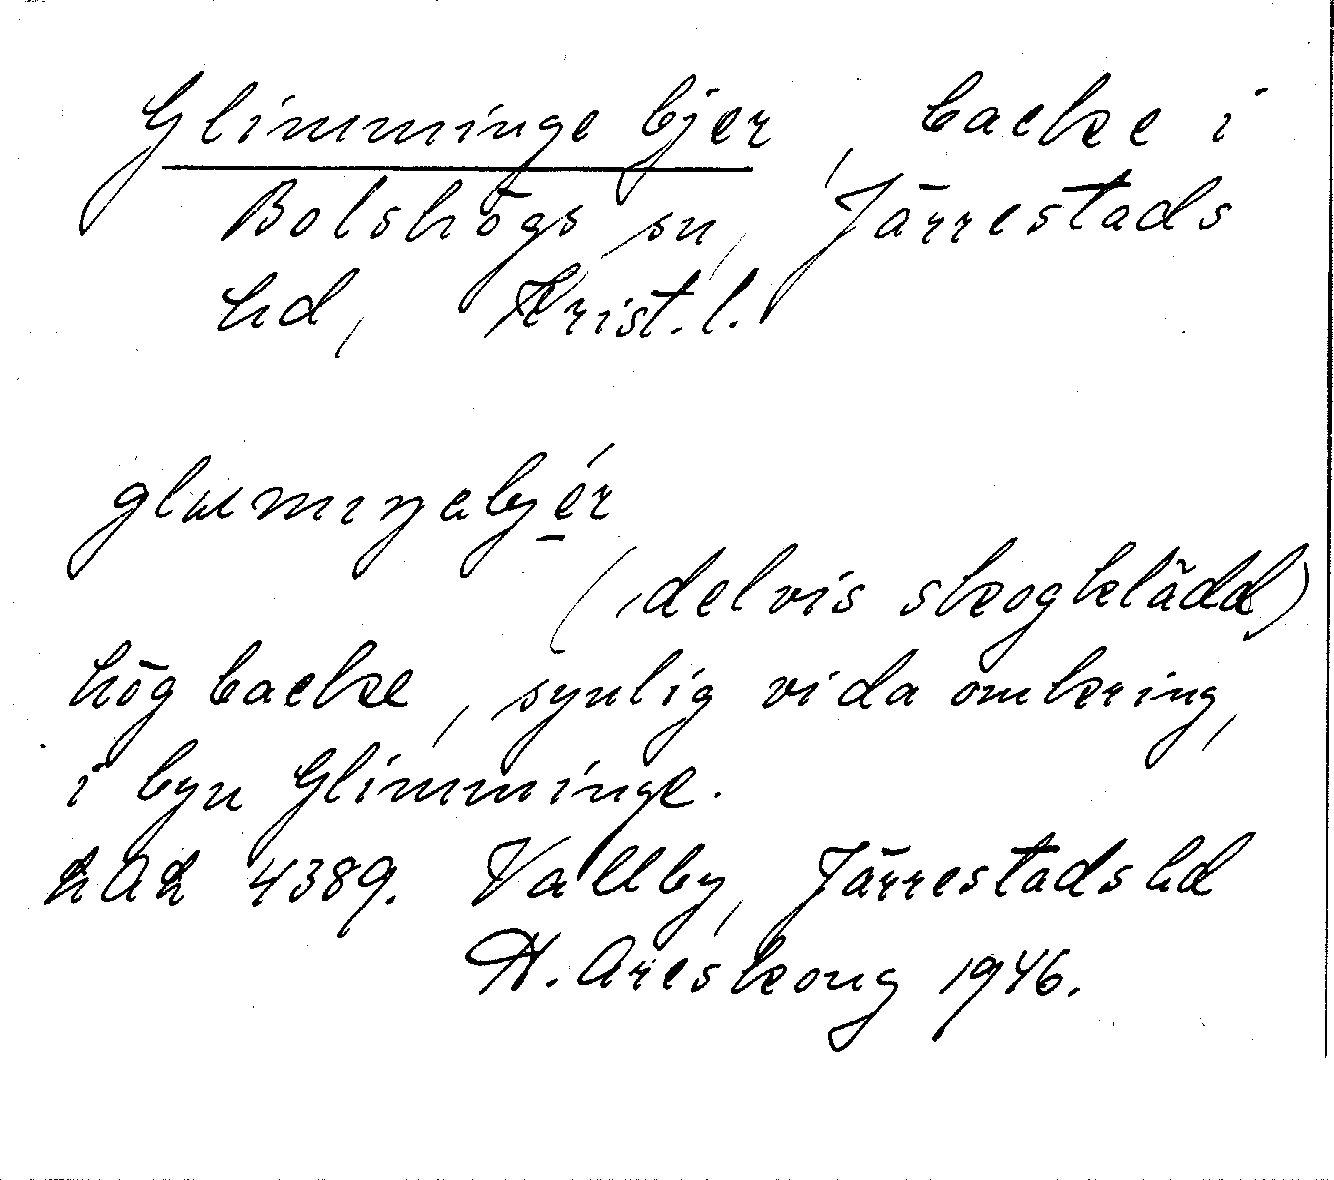 Glimminge bjer, backe i
Bolshögs sn, Järrestads
hd, Krist. l.
(delvis skogklädd)
hög backe, synlig vida omkring,
i byn Glimminge.
LAL 4389. Vallby, Järrestads hd
H. Areskoug 1946.